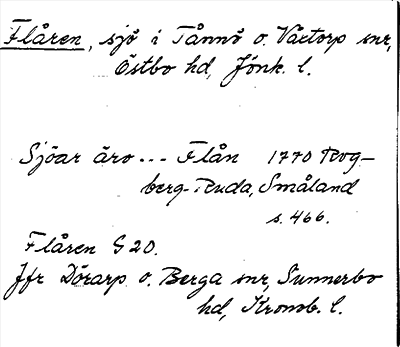 Flåren, sjö i Tånnö o. Värtorp snr,
Östbo hd, Jönk. l.
Sjöar äro ... Flån 1770 Rog-
berg-Ruda, Småland
s. 466.
Flåren G 20.
Jfr Dörarp o. Berga snr, Sunnerbo
hd, Kronob. l.